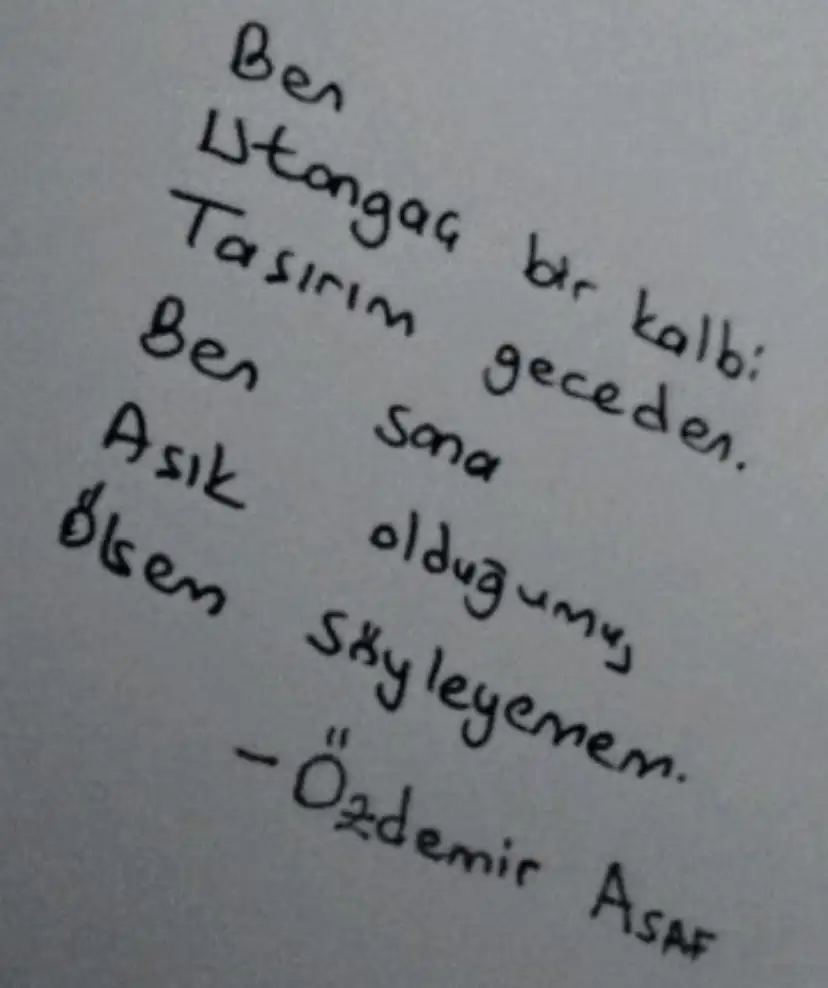 Ben
Utangaç bir kalbi
Tasırım geceden.
Ben sana
Asık olduğumu,
Ölsem söyleyemem.
- Özdemir ASAF